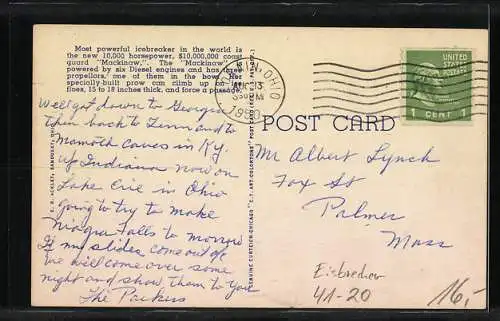 Most powerful icebreaker in the world is
the new 10,000 horsepower, $10,000,000 coast
guard "Mackinaw". The "Mackinaw" is
powered by six Diesel engines and has three
propellors, one of them in the bow. Her
specially-built prow can climb up on ice
floes, 15 to 18 inches thick, and force a passage.
Well got down to Georgia
then back to Tenn and to
Mamoth Caves in Ky.
up Indiana now on
Lake Erie in Ohio
going to try to make
Niagra Falls to morrow
If my slides come out ok
we will come over some
night and show them to you
The Parkers
OHIO
1950
UNITED STATES
POSTAGE
1 CENT 1
POST CARD
GENUINE CURTEICH-CHICAGO "C.T. ART-COLORTONE" POST CARD
Mr Albert Lynch
Fox St
Palmer
Mass
Eisbrecher
41-20
16,-